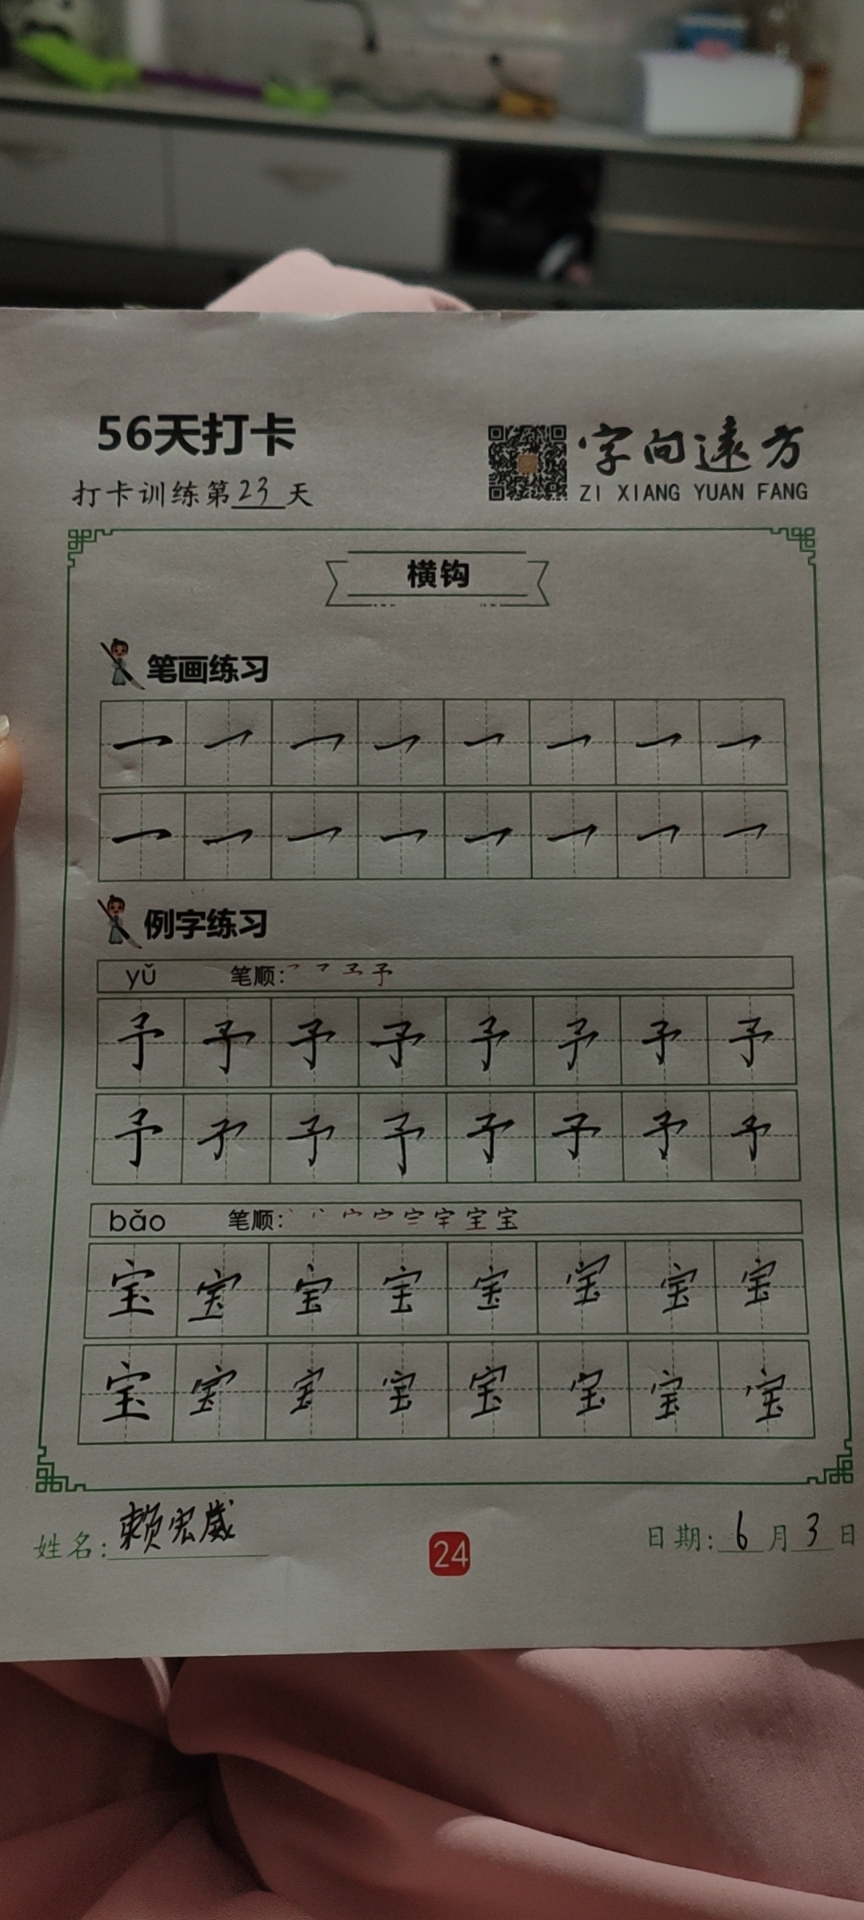 56天打卡
字向远方
ZI XIANG YUAN FANG
打卡训练第23天
横钩
笔画练习
例字练习
yǔ 笔顺:予
予 予 予 予 予 予 予 予
予 予 予 予 予 予 予 予
bǎo 笔顺:宝
宝 宝 宝 宝 宝 宝 宝 宝
宝 宝 宝 宝 宝 宝 宝 宝
姓名:赖宏崴
24
日期:6月3日